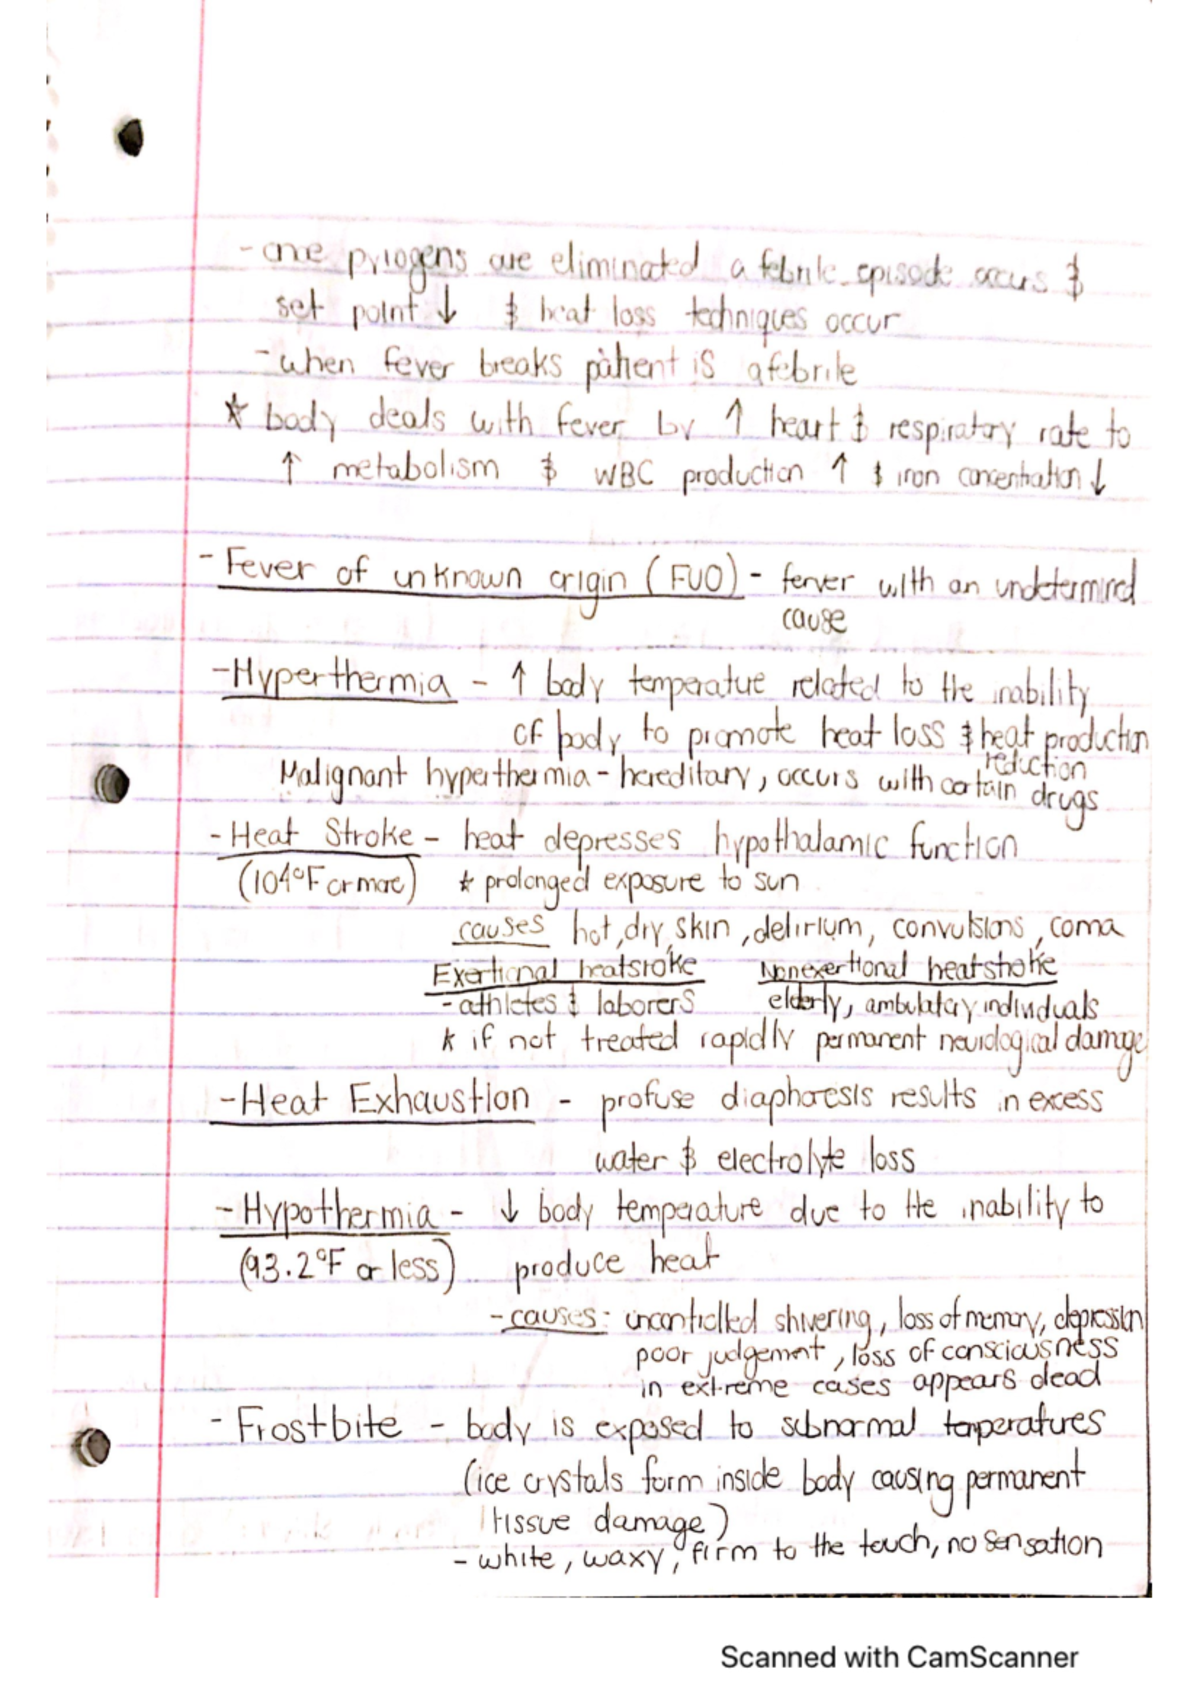 - once pyrogens are eliminated a febrile episode occurs &
set point ↓ & heat loss techniques occur
- when fever breaks patient is afebrile
* body deals with fever by ↑ heart & respiratory rate to
↑ metabolism & WBC production ↑ & iron concentration ↓
- Fever of unknown origin (FUO) - ferver with an undetermined
cause
- Hyperthermia - ↑ body temperatue related to the inability
of body to promote heat loss & heat production
reduction
Malignant hyperthermia - hereditary, occurs with certain drugs
- Heat Stroke - heat depresses hypothalamic function
(104°F or more) * prolonged exposure to sun
causes hot, dry, skin, delirium, convulsions, coma
Exertional heatsroke Nonexertional heatstroke
- athletes & laborers elderly, ambulatory individuals
* if not treated rapidly permanent neurological damage
- Heat Exhaustion - profuse diaphoresis results in excess
water & electrolyte loss
- Hypothermia - ↓ body temperature due to the inability to
(93.2°F or less) produce heat
- causes: uncontrolled shivering, loss of memory, depression
poor judgement, loss of consciousness
in extreme cases appears dead
- Frostbite - body is exposed to subnormal temperatures
(ice crystals form inside body causing permanent
tissue damage)
- white, waxy, firm to the touch, no sensation
Scanned with CamScanner